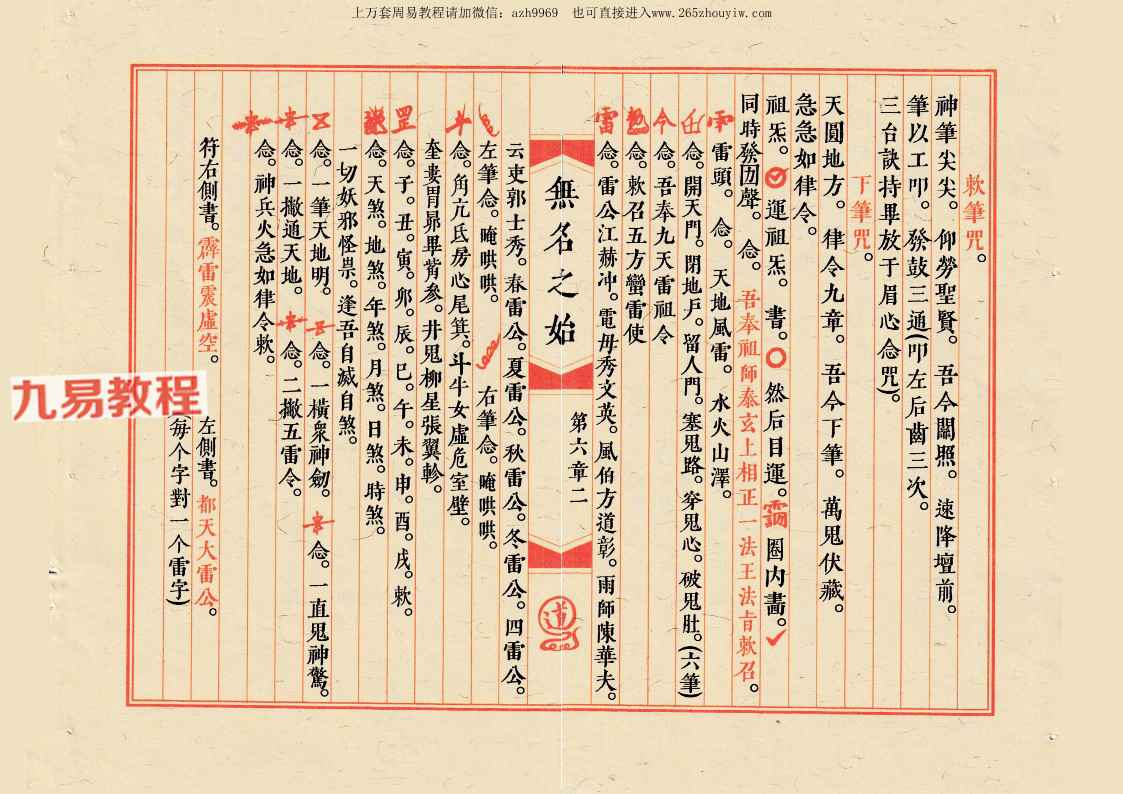 上万套周易教程请加微信：azh9969 也可直接进入www.265zhouyiw.com
敕筆咒。
神筆尖尖。仰勞聖賢。吾今關照。速降壇前。
筆以工叩。發鼓三通(叩左后齒三次。
三台訣持畢放于眉心念咒)。
下筆咒。
天圓地方。律令九章。吾今下筆。萬鬼伏藏。
急急如律令。
祖炁。運祖炁。書。然后目運。圈内畵。
同時發囝聲。念。吾奉祖師泰玄上相正一法王法旨敕召。
雷頭。念。天地風雷。水火山澤。
念。開天門。閉地戶。留人門。塞鬼路。穿鬼心。破鬼肚。(六筆)
令 念。吾奉九天雷祖令
念。敕召五方蠻雷使
雷 念。雷公江赫冲。電毋秀文英。風伯方道彰。雨師陳華夫。
無名之始
第六章二
道
云吏郭士秀。春雷公。夏雷公。秋雷公。冬雷公。四雷公。
左筆念。唵哄哄。右筆念。唵哄哄。
斗 念。角亢氐房心尾箕。斗牛女虛危室壁。
奎婁胃昴畢觜參。井鬼柳星張翼軫。
罡 念。子。丑。寅。卯。辰。巳。午。未。申。酉。戌。敕。
念。天煞。地煞。年煞。月煞。日煞。時煞。
一切妖邪怪祟。逢吾自滅自煞。
念。一筆天地明。念。一橫衆神劒。念。一直鬼神驚。
念。一撇通天地。念。二撇五雷令。
念。神兵火急如律令敕。
符右側書。霹雷震虛空。左側書。都天大雷公。
(每个字對一个雷字)
九易教程